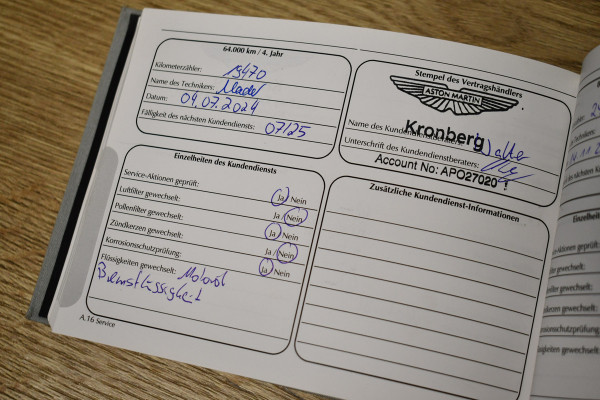 64.000 km / 4. Jahr
Kilometerzähler: 15470
Name des Technikers: Madel
Datum: 04.07.2024
Fälligkeit des nächsten Kundendiensts: 07/25
Stempel des Vertragshändlers
ASTON MARTIN
Kronberg
Name des Kundendienstberaters: Walter
Unterschrift des Kundendienstberaters:
Account No: APO27020 1
Einzelheiten des Kundendiensts
Service-Aktionen geprüft: Ja / Nein
Luftfilter gewechselt: Ja / Nein
Pollenfilter gewechselt: Ja / Nein
Zündkerzen gewechselt: Ja / Nein
Korrosionsschutzprüfung: Ja / Nein
Flüssigkeiten gewechselt: Motoröl
Bremsflüssigkeit
Zusätzliche Kundendienst-Informationen
A.16 Service
Einzelheiten
Service-Aktionen geprüft:
Luftfilter gewechselt: